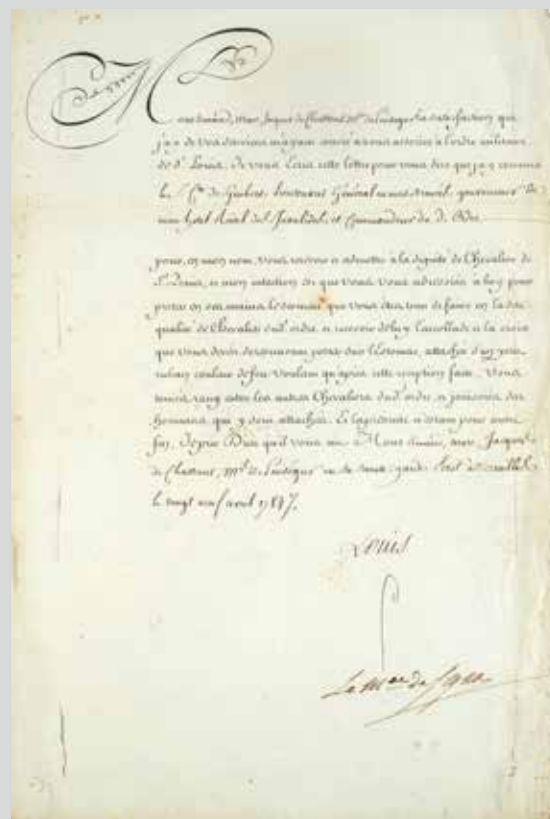 Mons. Amand, Marc Jacques de Chastenet, M.is de Puisegur, la satisfaction que
j'ai de vos services m'ayant convié à vous associer à l'ordre militaire
de S.t Louis, Je vous écris cette lettre pour vous dire que j'ay commis
le C.te de Guibert, Lieutenant Général en mes armées, gouverneur de
mon hôtel Roial des Invalides, et Commandeur du d. Ordre
pour, en mon nom, vous recevoir et admettre à la dignité de Chevalier de
S.t Louis, et mon intention est que vous vous adressiés à luy pour
prêter en ses mains le serment que vous êtes tenu de faire en la ditte
qualité de Chevalier dud. ordre, et recevoir de luy l'accollade et la croix
que vous devés dorénavant porter sur l'Estomac, attachée d'un petit
ruban couleur de feu: Voulant qu'après cette réception faite, Vous
teniés rang entre les autres Chevaliers dud. ordre, et jouissiés des
honneurs qui y sont attachés. Et la présente n'étant pour autre
fin, Je prie Dieu qu'il vous ait Mons. Amand, Marc, Jacques
de Chastenet, M.is de Puisegur en sa sainte garde. Ecrit à Versailles
le vingt neuf avril 1787.
Louis
Le M.al de Segur